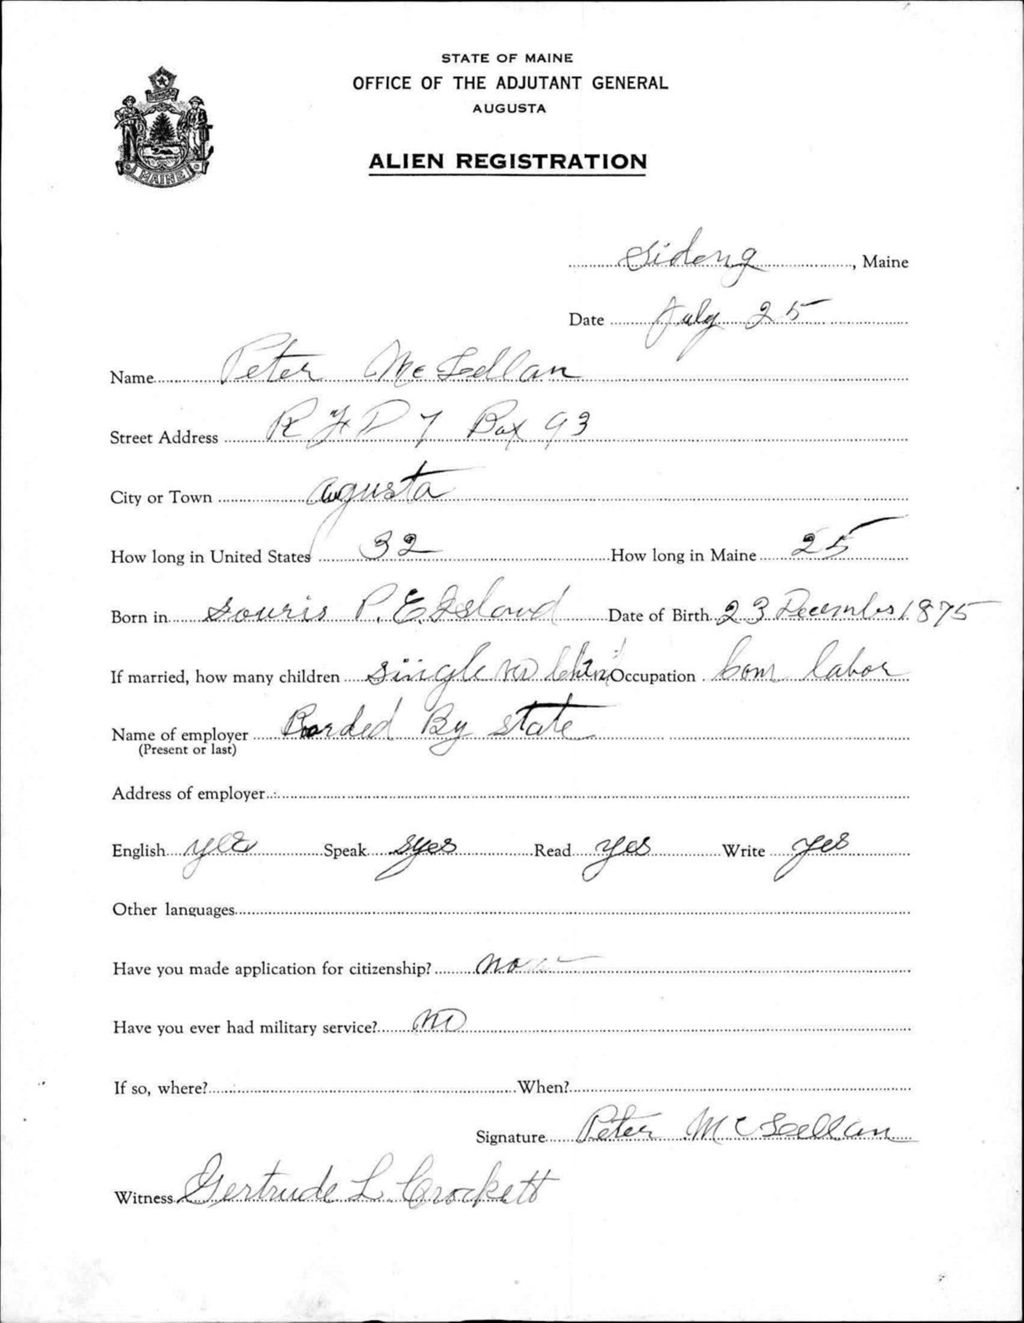 STATE OF MAINE
OFFICE OF THE ADJUTANT GENERAL
AUGUSTA
MAINE
ALIEN REGISTRATION
Sideny, Maine
Date July 25
Name Peter
Street Address R F D 7 Box 93
City or Town Augusta
How long in United States 32 How long in Maine 25
Born in Souris P. E. Island Date of Birth 23 December 1875
If married, how many children single no Occupation Com labor
Name of employer Borded By state
(Present or last)
Address of employer
English yes Speak yes Read yes Write yes
Other languages
Have you made application for citizenship? no
Have you ever had military service? no
If so, where? When?
Signature Peter
Witness Gertrude L. Crockett